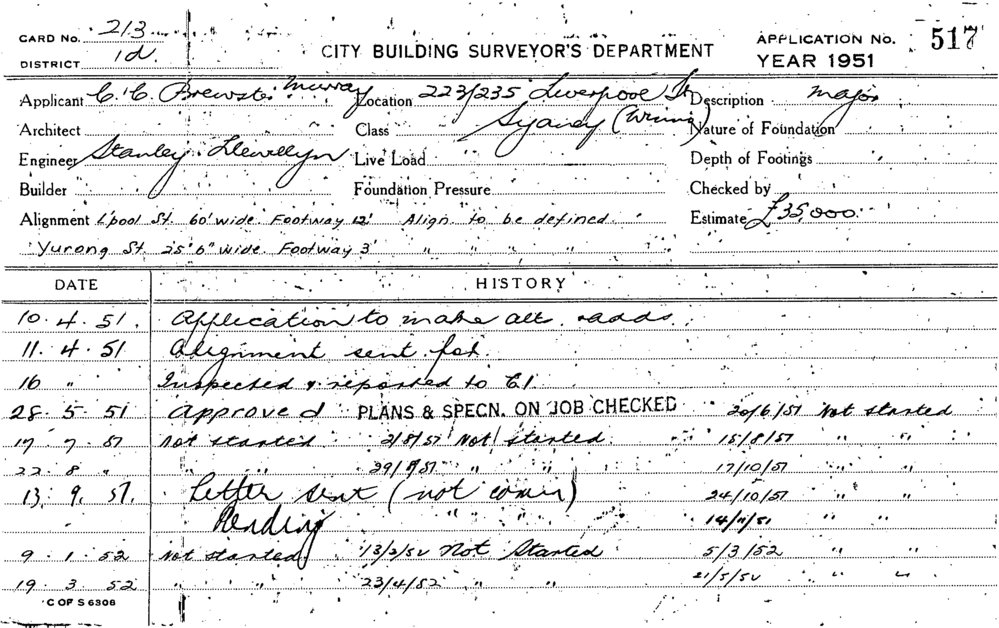 CARD No. 213
DISTRICT 1d.
CITY BUILDING SURVEYOR'S DEPARTMENT
APPLICATION No. 517
YEAR 1951
Applicant C. C. Brewster Murray Location 223/235 Liverpool St Description major
Architect Class Sydney Nature of Foundation
Engineer Stanley Llewellyn Live Load Depth of Footings
Builder Foundation Pressure Checked by
Alignment L'pool St. 60' wide. Footway 12' Align. to be defined. Estimate £35,000.
Yurong St. 25' 6" wide. Footway 3' " " " "
DATE HISTORY
10. 4. 51. Application to make alts adds.
11. 4. 51 Alignment sent for.
16 " Inspected & reported to
28. 5. 51 Approved PLANS & SPECN. ON JOB CHECKED 20/6/51 Not started
17 7. 51 Not started 2/8/51 Not started 15/8/51 " "
22. 8 " " " " " 17/10/51 " "
13. 9. 51. Letter sent (not) 24/10/51 " "
Pending " " " 14/11/51 " "
9. 1. 52 Not started 13/2/52 Not Started 5/3/52 " "
19. 3. 52 " " 23/4/52 " " 21/5/52 " "
C OF S 6306